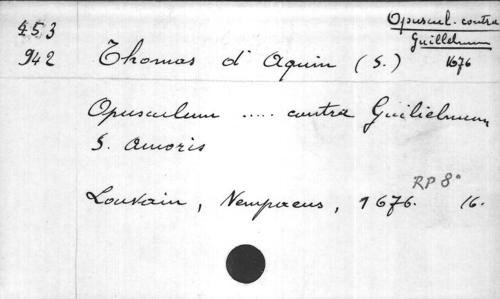 453
942
Opuscul. contra
Guillelmum
1676
Thomas d'Aquin (S.)
Opusculum ..... contra Guilielmum
S. Amoris
RP 8°
Louvain, Nempaeus, 1676. 16.